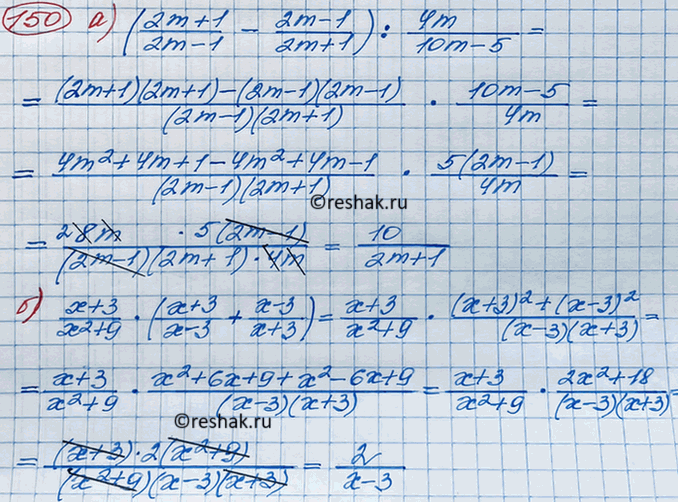 150 а) ((2m+1)/(2m-1) - (2m-1)/(2m+1)) : 4m/(10m-5) =
= ((2m+1)(2m+1)-(2m-1)(2m-1))/((2m-1)(2m+1)) · (10m-5)/4m =
= (4m²+4m+1-4m²+4m-1)/((2m-1)(2m+1)) · 5(2m-1)/4m =
©reshak.ru
= 2 8m · 5(2m-1)/((2m-1)(2m+1)·4m) = 10/(2m+1)
б) (x+3)/(x²+9) · ((x+3)/(x-3) + (x-3)/(x+3)) = (x+3)/(x²+9) · ((x+3)²+(x-3)²)/((x-3)(x+3)) =
= (x+3)/(x²+9) · (x²+6x+9+x²-6x+9)/((x-3)(x+3)) = (x+3)/(x²+9) · (2x²+18)/((x-3)(x+3)) =
©reshak.ru
= (x+3)·2(x²+9)/((x²+9)(x-3)(x+3)) = 2/(x-3)